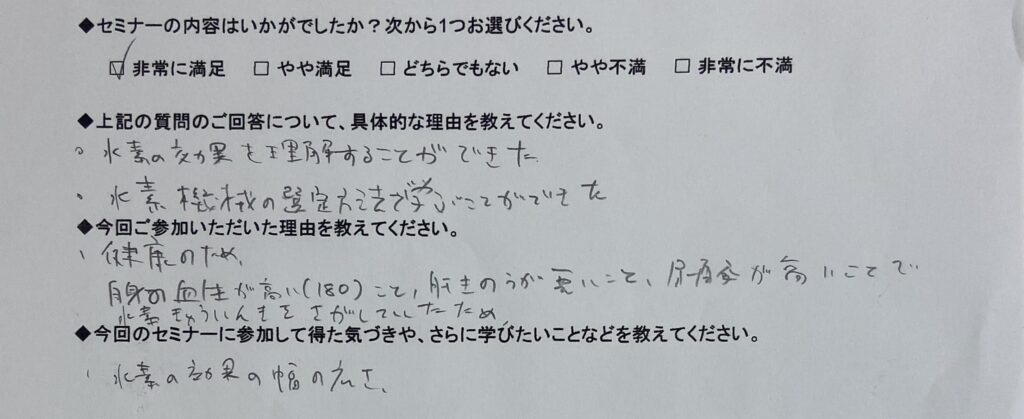 ◆セミナーの内容はいかがでしたか？次から1つお選びください。
☑ 非常に満足 □ やや満足 □ どちらでもない □ やや不満 □ 非常に不満
◆上記の質問のご回答について、具体的な理由を教えてください。
。水素の効果を理解することができた
・水素機械の選定方法が学ぶことができた
◆今回ご参加いただいた理由を教えてください。
、健康のため、
自身の血圧が高い(180)こと，肝きのうが悪いこと、尿酸が高いことで
水素きゅういんきをさがしていたため
◆今回のセミナーに参加して得た気づきや、さらに学びたいことなどを教えてください。
、水素の効果の幅の広さ、